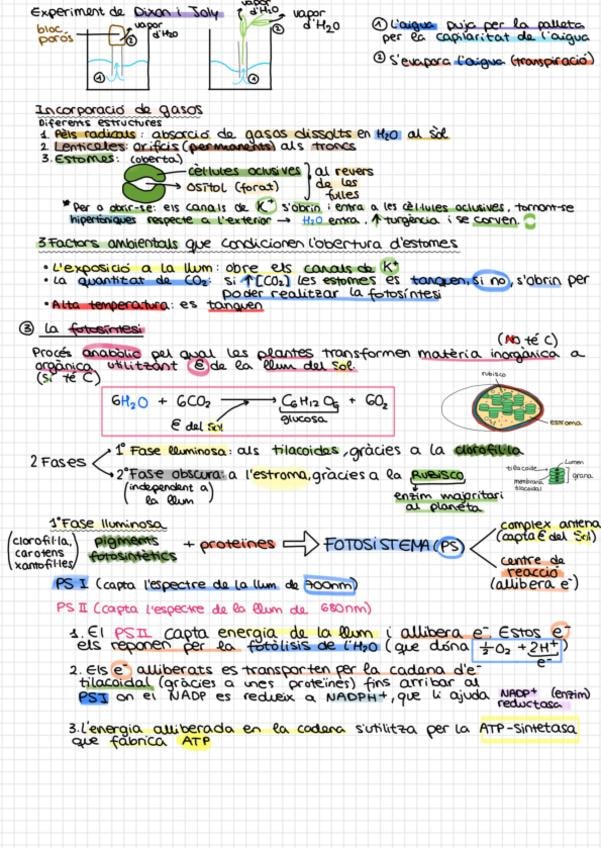 Experiment de Dixon i Joly
bloc porós
vapor d'H2O
②
①
vapor d'H2O
vapor d'H2O
②
①
① L'aigua puja per la palleta
per la capilaritat de l'aigua
② S'evapora l'aigua (transpiració)
Incorporació de gasos
Diferents estructures
1. Pèls radicals: absorció de gasos dissolts en H2O al sòl
2. Lenticeles: orificis (permanents) als troncs
3. Estomes: (oberta)
→ cèl·lules oclusives
→ Ostíol (forat)
} al revers
de les
fulles
* Per a obrir-se: els canals de K+ s'obrin i entra a les cèl·lules oclusives, tornant-se
hipertòniques respecte a l'exterior → H2O entra, ↑turgència i se corven.
3 Factors ambientals que condicionen l'obertura d'estomes
• L'exposició a la llum: obre els canals de K+
• La quantitat de CO2: si ↑[CO2] les estomes es tanquen, si no, s'obrin per
poder realitzar la fotosíntesi
• Alta temperatura: es tanquen
③ La fotosíntesi
(NO té C)
Procés anabòlic pel qual les plantes transformen matèria inorgànica a
orgànica, utilitzant E de la llum del Sol.
(Sí té C)
6H2O + 6CO2 → C6H12O6 + 6O2
E del Sol
glucosa
rubisco
estroma
2 Fases
1ª Fase lluminosa: als tilacoides, gràcies a la clorofil·la
2ª Fase obscura: a l'estroma, gràcies a la RUBISCO
(independent a)
la llum
enzim majoritari
al planeta
tilacoide
membrana tilacoidal
Lumen
grana
1ª Fase lluminosa
(clorofil·la,
carotens
xantofil·les)
pigments
fotosintètics
+ proteïnes ⇒ FOTOSISTEMA (PS)
complex antena
(capta E del Sol)
centre de
reacció
(allibera e-)
PS I (capta l'espectre de la llum de 700nm)
PS II (capta l'espectre de la llum de 680nm)
1. El PSII capta energia de la llum i allibera e-. Estos e-
els reponen per la fotòlisis de l'H2O (que dóna 1/2 O2 + 2H+
e-
2. Els e- alliberats es transporten per la cadena d'e-
tilacoidal (gràcies a unes proteïnes) fins arribar al
PSI on el NADP es redueix a NADPH+, que li ajuda NADP+ (enzim)
reductasa
3. L'energia alliberada en la cadena s'utilitza per la ATP-sintetasa
que fabrica ATP